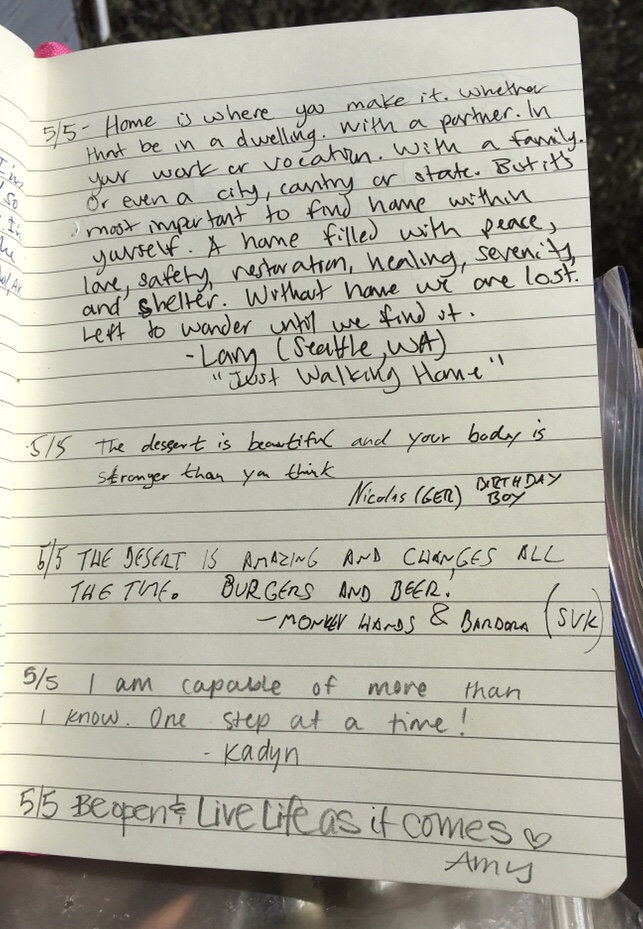 5/5 - Home is where you make it. Whether
that be in a dwelling. With a partner. In
your work or vocation. With a family.
Or even a city, country or state. But it's
most important to find home within
yourself. A home filled with peace,
love, safety, restoration, healing, serenity,
and shelter. Without home we are lost.
Left to wander until we find it.
- Larry (Seattle, WA)
"Just Walking Home"
5/5 The dessert is beautiful and your body is
stronger than you think
Nicolas (GER) BIRTHDAY
BOY
5/5 THE DESERT IS AMAZING AND CHANGES ALL
THE TIME. BURGERS AND BEER!
- MONKEY HANDS & BARBORA (SVK)
5/5 I am capable of more than
I know. One step at a time!
- Kadyn
5/5 Be open & Live Life as it comes ♡
Amy